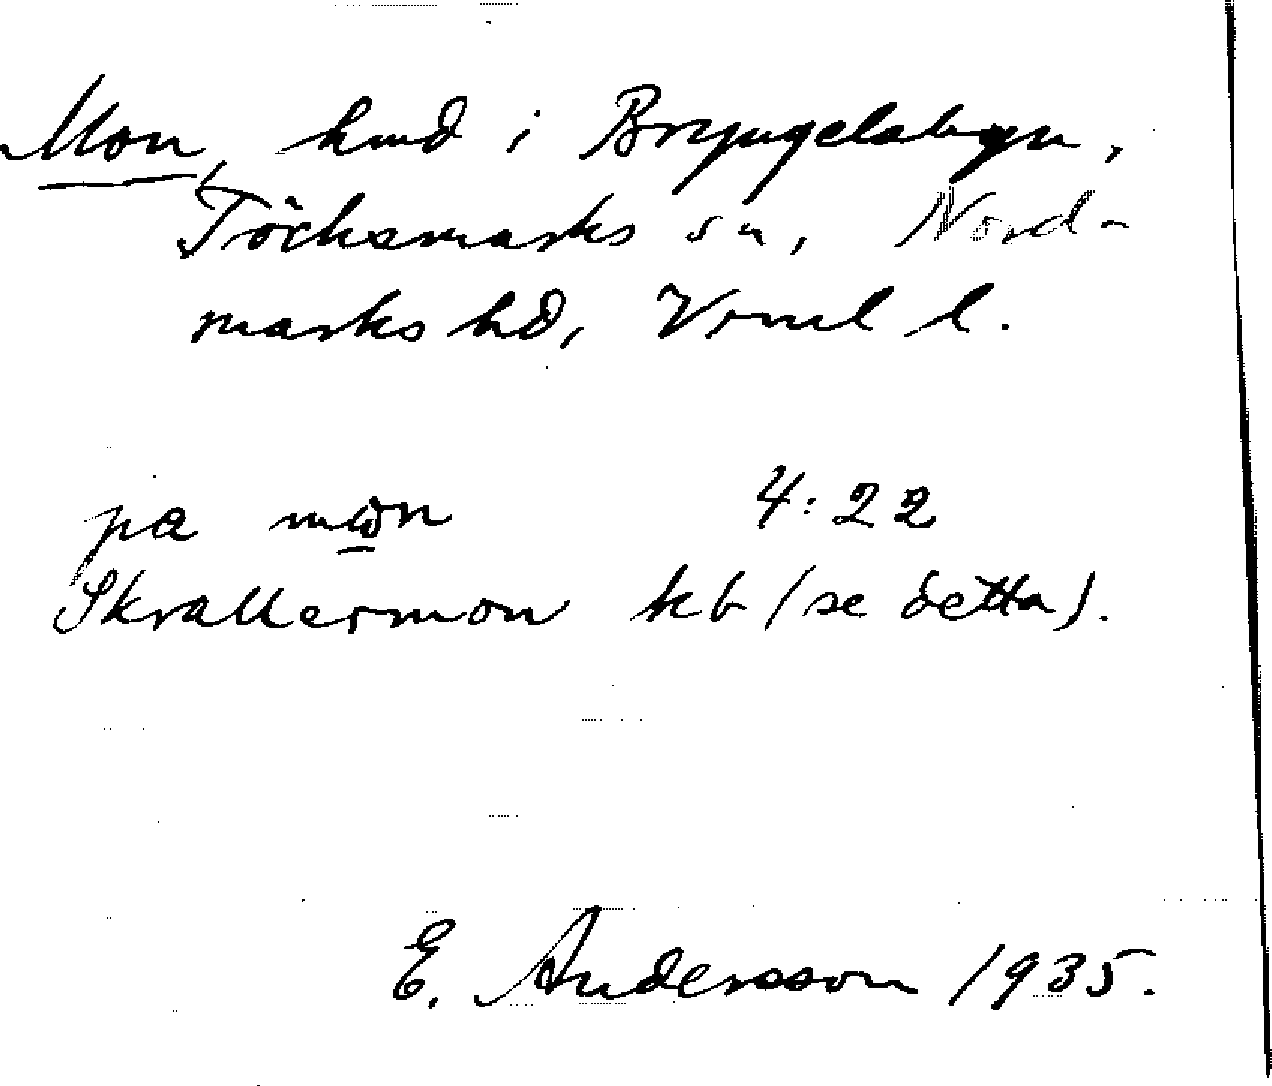 Mon, hmd i Bryngelsbyn,
Töcksmarks sn, Nord-
marks hd, Vrml l.
pa mωn 4:22
Skrallermon hb (se detta).
E. Andersson 1935.